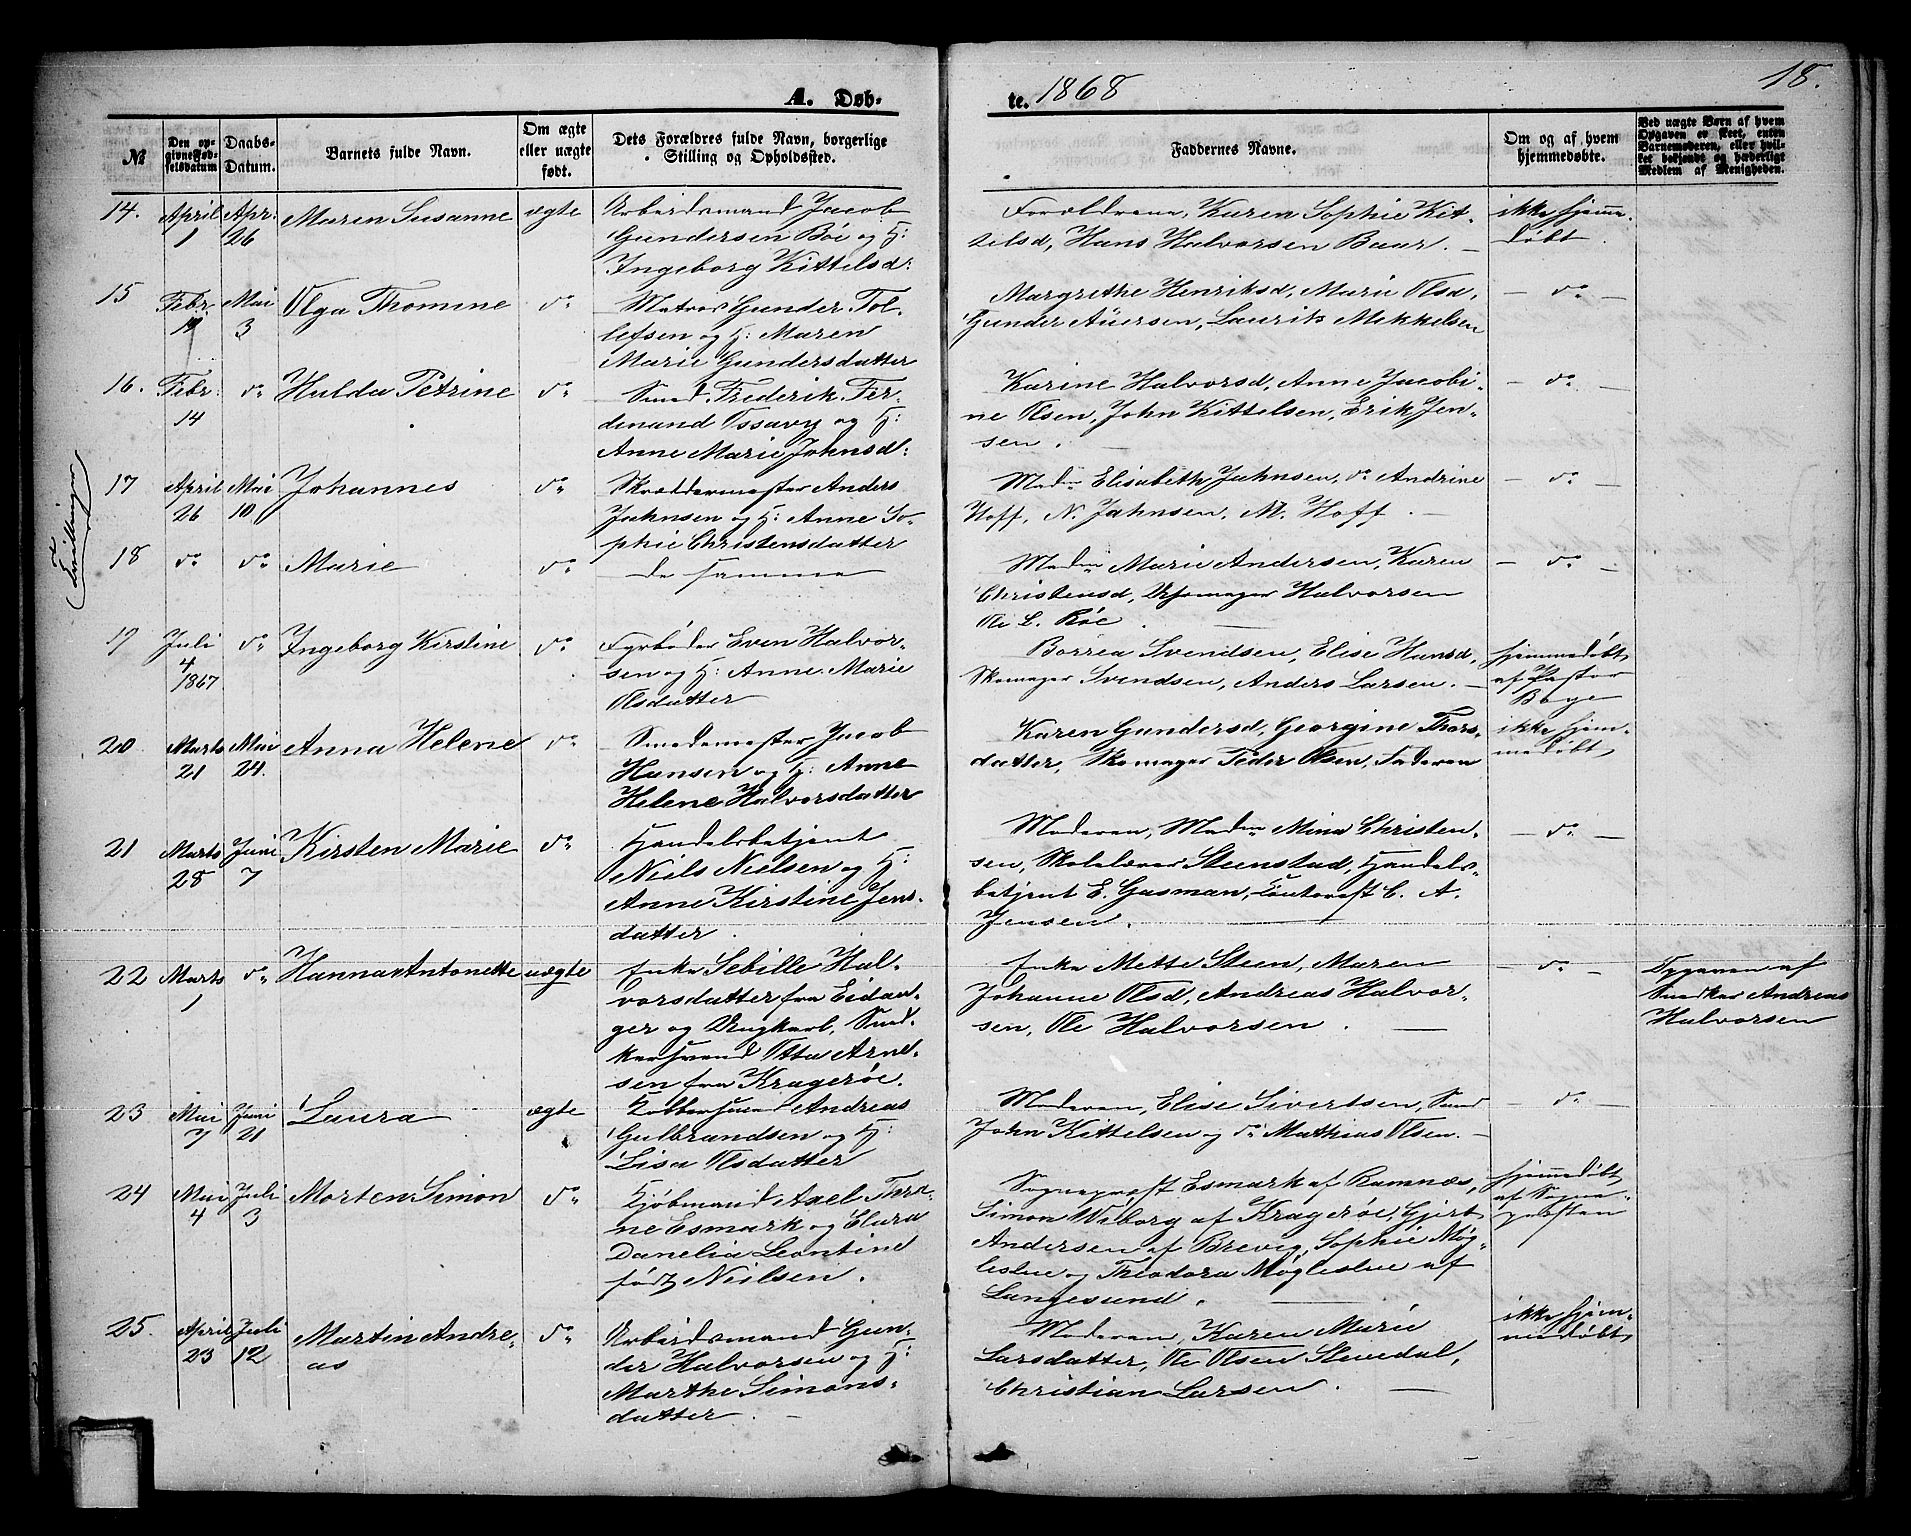 A. Døb-
te. 1868
18.
№
Den op-
givne Fød-
selsdatum
Daabs-
Datum.
Barnets fulde Navn.
Om ægte
eller uægte
født.
Dets Forældres fulde Navn, borgerlige
Stilling og Opholdssted.
Faddernes Navne.
Om og af hvem
hjemmedøbte.
Ved uægte Børn af hvem
Opgaven er skeet, enten
Barnemoderen, eller hvil-
ket bekjendt og hæderligt
Medlem af Menigheden.
14. April 1 Apr: 26 Maren Susanne ægte
Arbeidsmand Jacob
Gundersen Böe og H:
Ingeborg Kittelsd:
Forældrene, Karen Sophie Kit-
telsd, Hans Halvorsen Baar. —
ikke hjemme-
døbt.
15 Febr. Mai 3 Olga Thomine do
Matros Gunder Tol-
lefsen og H: Maren
Marie Gundersdatter
Margrethe Henriksd, Marie Olsd,
Gunder Auersen, Laurits Mikkelsen
— do —
16. Febr. 14 do Hulda Petrine do
Smed Frederik Fer-
dinand Ossavy og H:
Anne Marie Johnsd:
Karine Halvorsd, Anne Jacobi-
ne Olsen, John Kittelsen, Erik Jen-
sen.
— do —
Tvillinger
17 April 26 Mai 10 Johannes do
Skræddermester Anders
Jahnsen og H: Anne So-
phie Christensdatter
Madm Elisabeth Jahnsen, do Andrine
Hoff, N. Jahnsen, M. Hoff. —
— do —
18 do do Marie do
de samme
Madm Marie Andersen, Karen
Christensd, Uhrmager Halvorsen
Ole L. Röe.
— do —
19 Juli 4 1867 do Ingeborg Kirstine do
Fyrbøder Even Halvor-
sen og H: Anne Marie
Olsdatter
Borrea Svendsen, Elise Hansd,
Skomager Svendsen, Anders Larsen. —
hjemmedøbt
af Pastor
Boye
20. Marts 21 Mai 24. Anna Helene do
Smedemester Jacob
Hansen og H: Anne
Helene Halvorsdatter
Karen Gundersd, Georgine Thors-
datter, Skomager Peder Olsen, Faderen
ikke hjem-
medøbt
21 Marts 28 Juni 7 Kirsten Marie do
Handelsbetjent
Niels Nielsen og H:
Anne Kirstine Jens-
datter.
Moderen, Madm Mina Christen-
sen, Skolelærer Steenstad, Handels-
betjent E. Gasman, Contorist C. A.
Jensen.
— do —
22 Marts 1 do Hanna Antonette uægte
Enke Sebille Hal-
vorsdatter fra Eidan-
ger og Ungkarl, Sned-
kersvend Otto Arne-
sen fra Kragerøe.
Enke Mette Steen, Maren
Johanne Olsd, Andreas Halvor-
sen, Ole Halvorsen. —
— do —
Opgaven af
Snedker Andreas
Halvorsen
23 Mai 7 Juni 21 Laura ægte
Andreas
Gulbrandsen og H:
Lisa Olsdatter
Moderen, Elise Sivertsen, Smed
John Kittelsen og do Mathias Olsen. —
— do —
24 Mai 4 Juli 3 Morten Simon do
Kjøbmand Axel Thra-
ne Esmark og Clara
Danelia Leontine
født Nielsen.
Sogneprest Esmark af Ramnæs,
Simon Wiborg af Kragerøe, Gjert
Andersen af Brevig, Sophie Møg-
lestue og Theodora Møglestue af
Langesund.
hjemmedøbt
af Sogne-
presten
25. April 23 Juli 12 Martin Andre-
as do
Arbeidsmand Gun-
der Halvorsen og H:
Marthe Simons-
datter. —
Moderen, Karen Marie
Larsdatter, Ole Olsen Stevedal,
Christian Larsen. —
ikke hjem-
medøbt